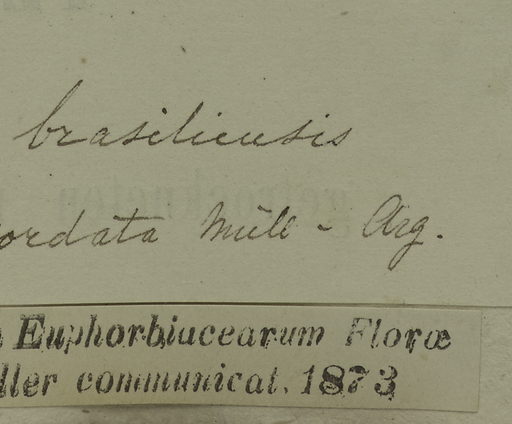 brasiliensis
ordata Müll - Arg.
Euphorbiacearum Floræ
ller communicat. 1873